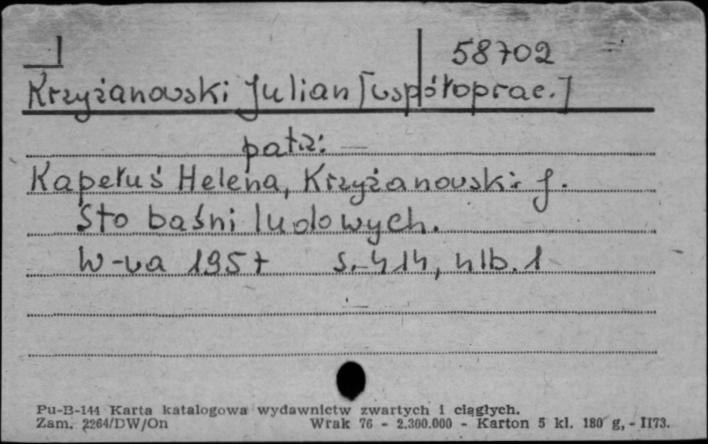 I 58702
Krzyżanowski Julian [współoprac.]
patrz:
Kapełuś Helena, Krzyżanowski J.
Sto baśni ludowych.
W-wa 1957 s. 414, nlb. 1
Pu-B-144 Karta katalogowa wydawnictw zwartych i ciągłych.
Zam. 2264/DW/On Wrak 76 - 2.300.000 - Karton 5 kl. 180 g, - II73.